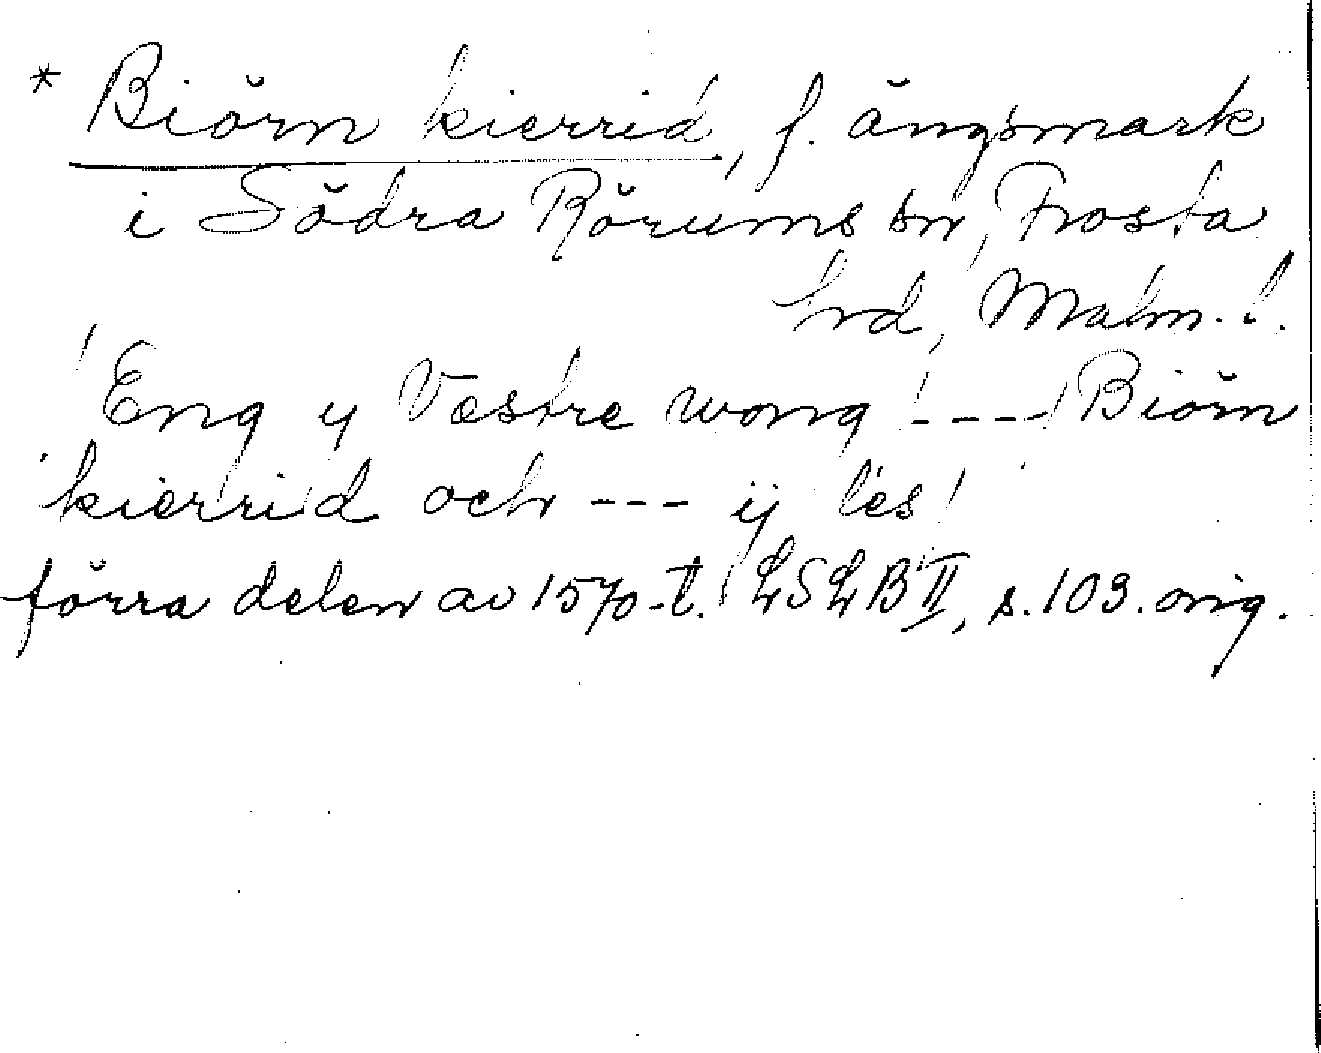 * Biörn kierrid, f. ängsmark
i Södra Rörums sn, Frosta
hrd, Malm. l.
'Eng y Vestre wong ! --- ! Biörn
kierrid och --- ij les'
förra delen av 1570-t. LSLB II, s. 103. orig.